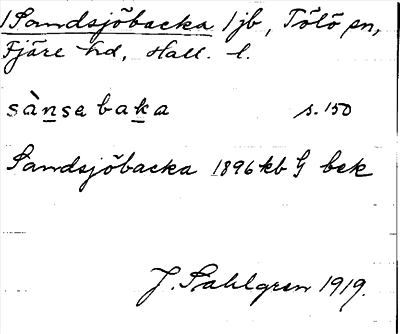 1 Sandsjöbacka 1 jb, Tölö sn,
Fjäre hd, Hall. l.
sànsebaka s. 150
Sandsjöbacka 1896 kb G bek
J. Sahlgren 1919.